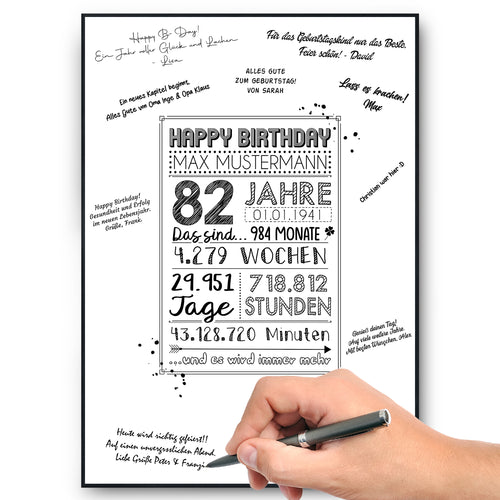 Happy B-Day!
Ein Jahr voller Glück und Lachen
- Lisa
Für das Geburtstagskind nur das Beste.
Feier schön! - David
ALLES GUTE
ZUM GEBURTSTAG!
VON SARAH
Ein neues Kapitel beginnt,
Alles Gute von Oma Inge & Opa Klaus
Lass es krachen!
Max
Christian war hier :D
Happy Birthday!
Gesundheit und Erfolg
im neuen Lebensjahr.
Grüße, Frank.
HAPPY BIRTHDAY
MAX MUSTERMANN
82 JAHRE
01.01.1941
Das sind... 984 MONATE
4.279 WOCHEN
29.951 Tage
718.812 STUNDEN
43.128.720 Minuten
...und es wird immer mehr
Genieß deinen Tag!
Auf viele weitere Jahre.
Mit besten Wünschen, Alex
Heute wird richtig gefeiert!!
Auf einen unvergesslichen Abend.
Liebe Grüße Peter & Franzi